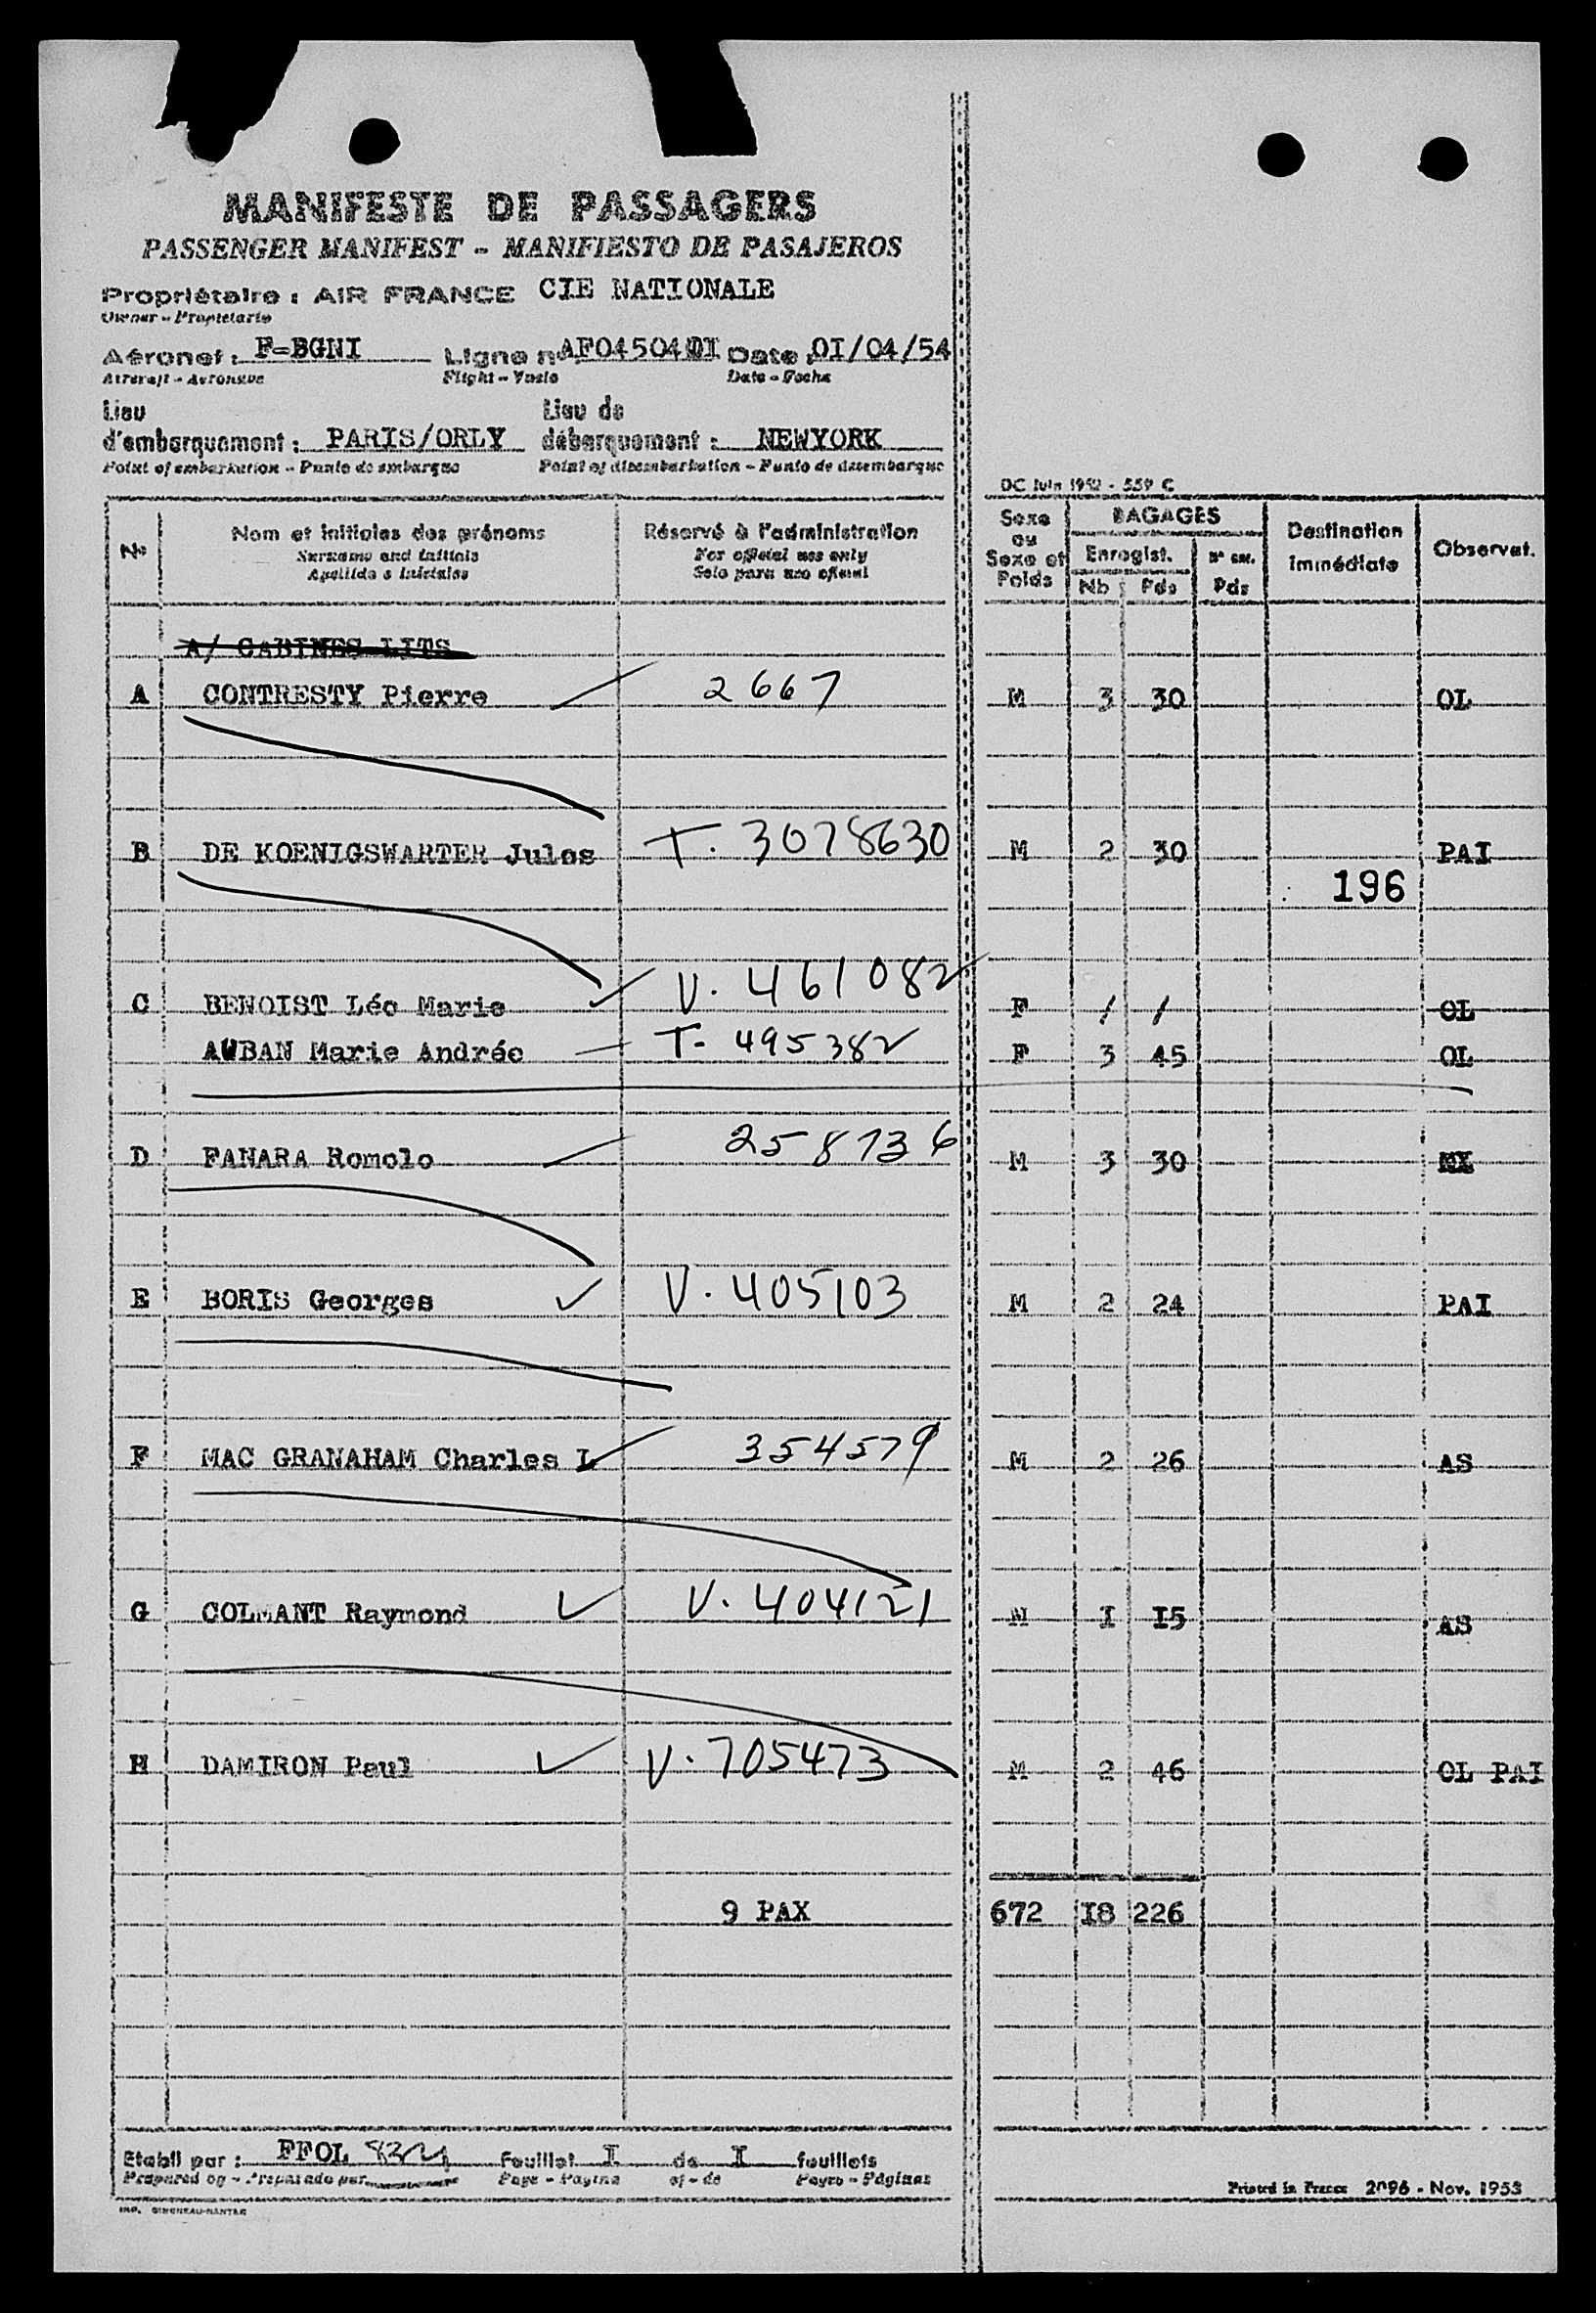 MANIFESTE DE PASSAGERS
PASSENGER MANIFEST - MANIFIESTO DE PASAJEROS
Propriétaire : AIR FRANCE CIE NATIONALE
Owner - Propietario
Aéronef : F-BGNI Ligne n° AF045040I Date : OI/04/54
Aircraft - Aeronave Flight - Vuelo Date - Fecha
Lieu d'embarquement : PARIS/ORLY Lieu de débarquement : NEWYORK
Point of embarkation - Punto de embarque Point of disembarkation - Punto de desembarque
DC Juin 1952 - 559 C
N° Nom et initiales des prénoms Réservé à l'administration Sexe ou Sexe et Poids BAGAGES Destination immédiate Observat.
Surname and initials For official use only Enregist.
Apellido e iniciales Solo para uso oficial Nb Pds Pds
A/ CABINES LITS
A CONTRESTY Pierre 2667 M 3 30 OL
B DE KOENIGSWARTER Jules T. 3078630 M 2 30 PAI
196
C BENOIST Léo Marie V. 461082 F / / OL
AUBAN Marie Andrée T- 495382 F 3 45 OL
D FANARA Romolo 258736 M 3 30
E BORIS Georges V. 405103 M 2 24 PAI
F MAC GRANAHAM Charles L 354579 M 2 26 AS
G COLMANT Raymond V. 404121 M I I5 AS
H DAMIRON Paul V. 705473 M 2 46 OL PAI
9 PAX 672 I8 226
Etabli par : FFOL Feuillet I de I feuillets
Prepared by - Preparado por Page - Página of - de Pages - Páginas
Printed in France 2096 - Nov. 1953
IMP. GIRONEAU-NANTER